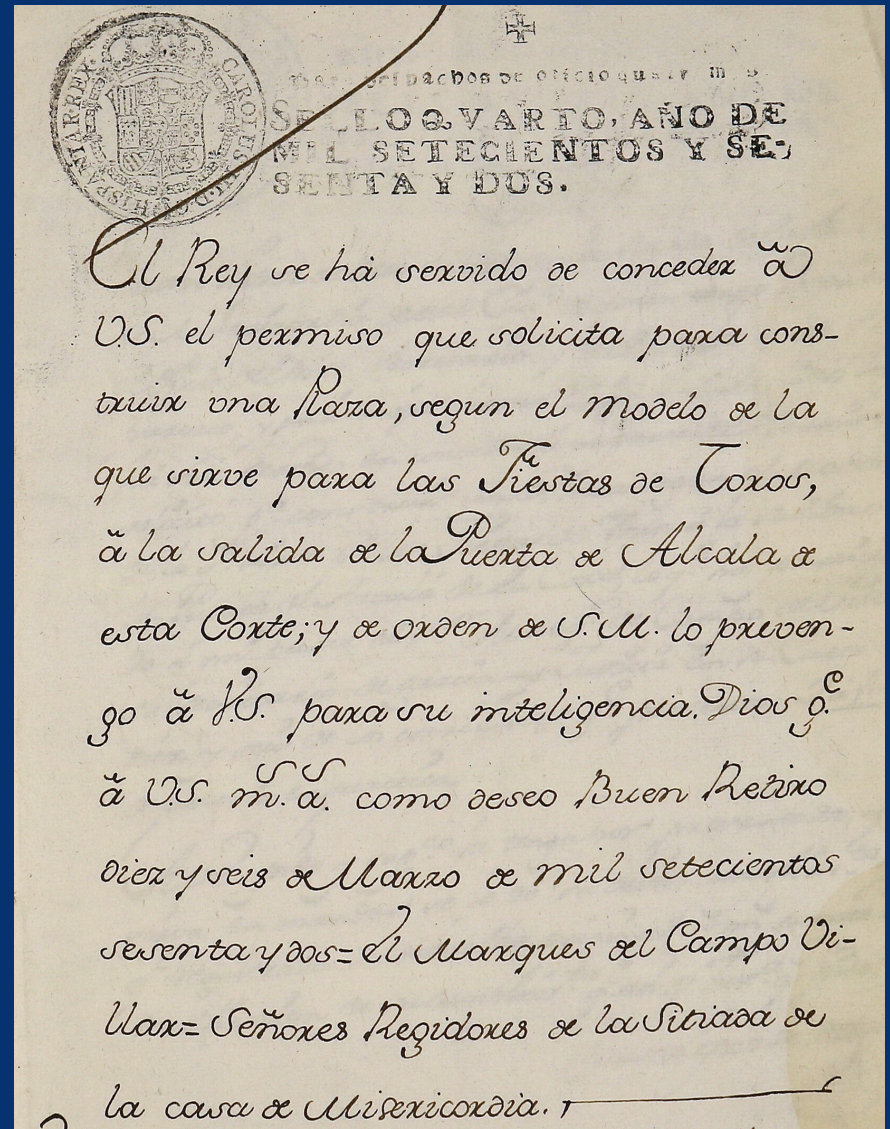 CAROLUS III D G HISPANIAR REX
Para despachos de oficio quatr mrs
SELLO QVARTO, AÑO DE
MIL SETECIENTOS Y SE-
SENTA Y DOS.
El Rey se há servido de conceder ā
V.S. el permiso que solicita para cons-
truir vna Plaza, segun el modelo de la
que sirve para las Fiestas de Toros,
ā la salida de la Puerta de Alcala de
esta Corte; y de orden de S.M. lo preven-
go ā V.S. para su inteligencia. Dios g.e
ā V.S. m.s a.s como deseo Buen Retiro
diez y seis de Marzo de mil setecientos
sesenta y dos= el Marques del Campo Vi-
llar= Señores Regidores de la Sitiada de
la casa de Misericordia.